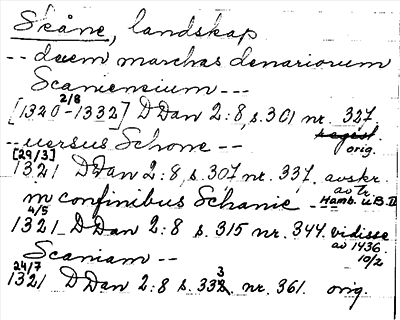 Skåne, landskap
-- decem marchas denariorum
Scaniensium ---
[1320 2/8 - 1332] DDan 2:8, s. 301 nr. 327.
regest.
orig.
-- uersus Schone --
[29/3]
1321 DDan 2:8, s. 307 nr. 337. avskr.
av tr.
in confinibus Schanie - Hamb. UB. II
4/5
1321 DDan 2:8 s. 315 nr. 344. vidisse
av 1436.
10/2
Scaniam --
24/7
1321 DDan 2:8 s. 333. nr. 361. orig.